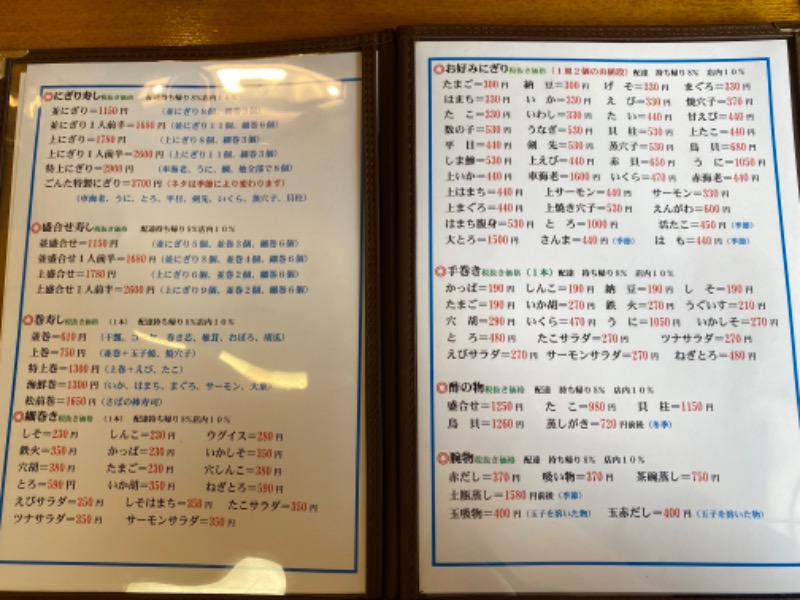 ◎にぎり寿し税抜き価格 配達持ち帰り8%店内10%
並にぎり=1150円 (並にぎり8個、細巻3個)
並にぎり1人前半=1680円(並にぎり11個、細巻6個)
上にぎり=1780円 (上にぎり8個、細巻3個)
上にぎり1人前半=2600円(上にぎり11個、細巻3個)
特上にぎり=2900円 (車海老、うに、鯛、他全部で8個)
ごんた特製にぎり=3700円(ネタは季節により変わります)
(車海老、うに、とろ、平目、剣先、いくら、蒸穴子、貝柱)
◎盛合せ寿し税抜き価格 配達持ち帰り8%店内10%
並盛合せ=1150円 (並にぎり5個、並巻3個、細巻6個)
並盛合せ1人前半=1680円(並にぎり8個、並巻4個、細巻6個)
上盛合せ=1780円 (上にぎり6個、並巻2個、細巻6個)
上盛合せ1人前半=2600円(上にぎり9個、並巻2個、細巻6個)
◎巻寿し税抜き価格 (1本) 配達持ち帰り8%店内10%
並巻=610円 (干瓢、巻き芯、椎茸、おぼろ、胡瓜)
上巻=750円 (並巻+玉子焼、焼穴子)
特上巻=1300円(上巻+えび、たこ)
海鮮巻=1300円(いか、はまち、まぐろ、サーモン、大葉)
松前巻=1650円(さばの棒寿司)
◎細巻き税抜き価格 (1本) 配達持ち帰り8%店内10%
しそ=230円 しんこ=230円 ウグイス=280円
鉄火=350円 かっぱ=230円 いかしそ=350円
穴胡=380円 たまご=230円 穴しんこ=380円
とろ=590円 いか胡=350円 ねぎとろ=590円
えびサラダ=350円 しそはまち=350円 たこサラダ=350円
ツナサラダ=350円 サーモンサラダ=350円
◎お好みにぎり税抜き価格(1皿2個のお値段)配達 持ち帰り8% 店内10%
たまご=300円 納 豆=300円 げ そ=330円 まぐろ=330円
はまち=330円 い か=330円 え び=330円 焼穴子=370円
た こ=330円 いわし=330円 た い=440円 甘えび=440円
数の子=530円 うなぎ=530円 貝 柱=530円 上たこ=440円
平 目=440円 剣 先=530円 蒸穴子=530円 鳥 貝=680円
しま鯵=530円 上えび=440円 赤 貝=450円 う に=1050円
上いか=440円 車海老=1600円 いくら=470円 赤海老=440円
上はまち=440円 上サーモン=440円 サーモン=330円
上まぐろ=440円 上焼き穴子=530円 えんがわ=600円
はまち腹身=530円 と ろ=1000円 活たこ=450円(季節)
大とろ=1500円 さんま=440円(季節) は も=440円(季節)
◎手巻き税抜き価格(1本)配達 持ち帰り8% 店内10%
かっぱ=190円 しんこ=190円 納 豆=190円 し そ=190円
たまご=190円 いか胡=270円 鉄 火=270円 うぐいす=210円
穴 胡=290円 いくら=470円 う に=1050円 いかしそ=270円
と ろ=480円 たこサラダ=270円 ツナサラダ=270円
えびサラダ=270円 サーモンサラダ=270円 ねぎとろ=480円
◎酢の物税抜き価格 配達 持ち帰り8% 店内10%
盛合せ=1250円 た こ=980円 貝 柱=1150円
鳥 貝=1260円 蒸しがき=720円前後(冬季)
◎腕物税抜き価格 配達 持ち帰り8% 店内10%
赤だし=370円 吸い物=370円 茶碗蒸し=750円
土瓶蒸し=1580円前後(季節)
玉吸物=400円(玉子を溶いた物) 玉赤だし=400円(玉子を溶いた物)